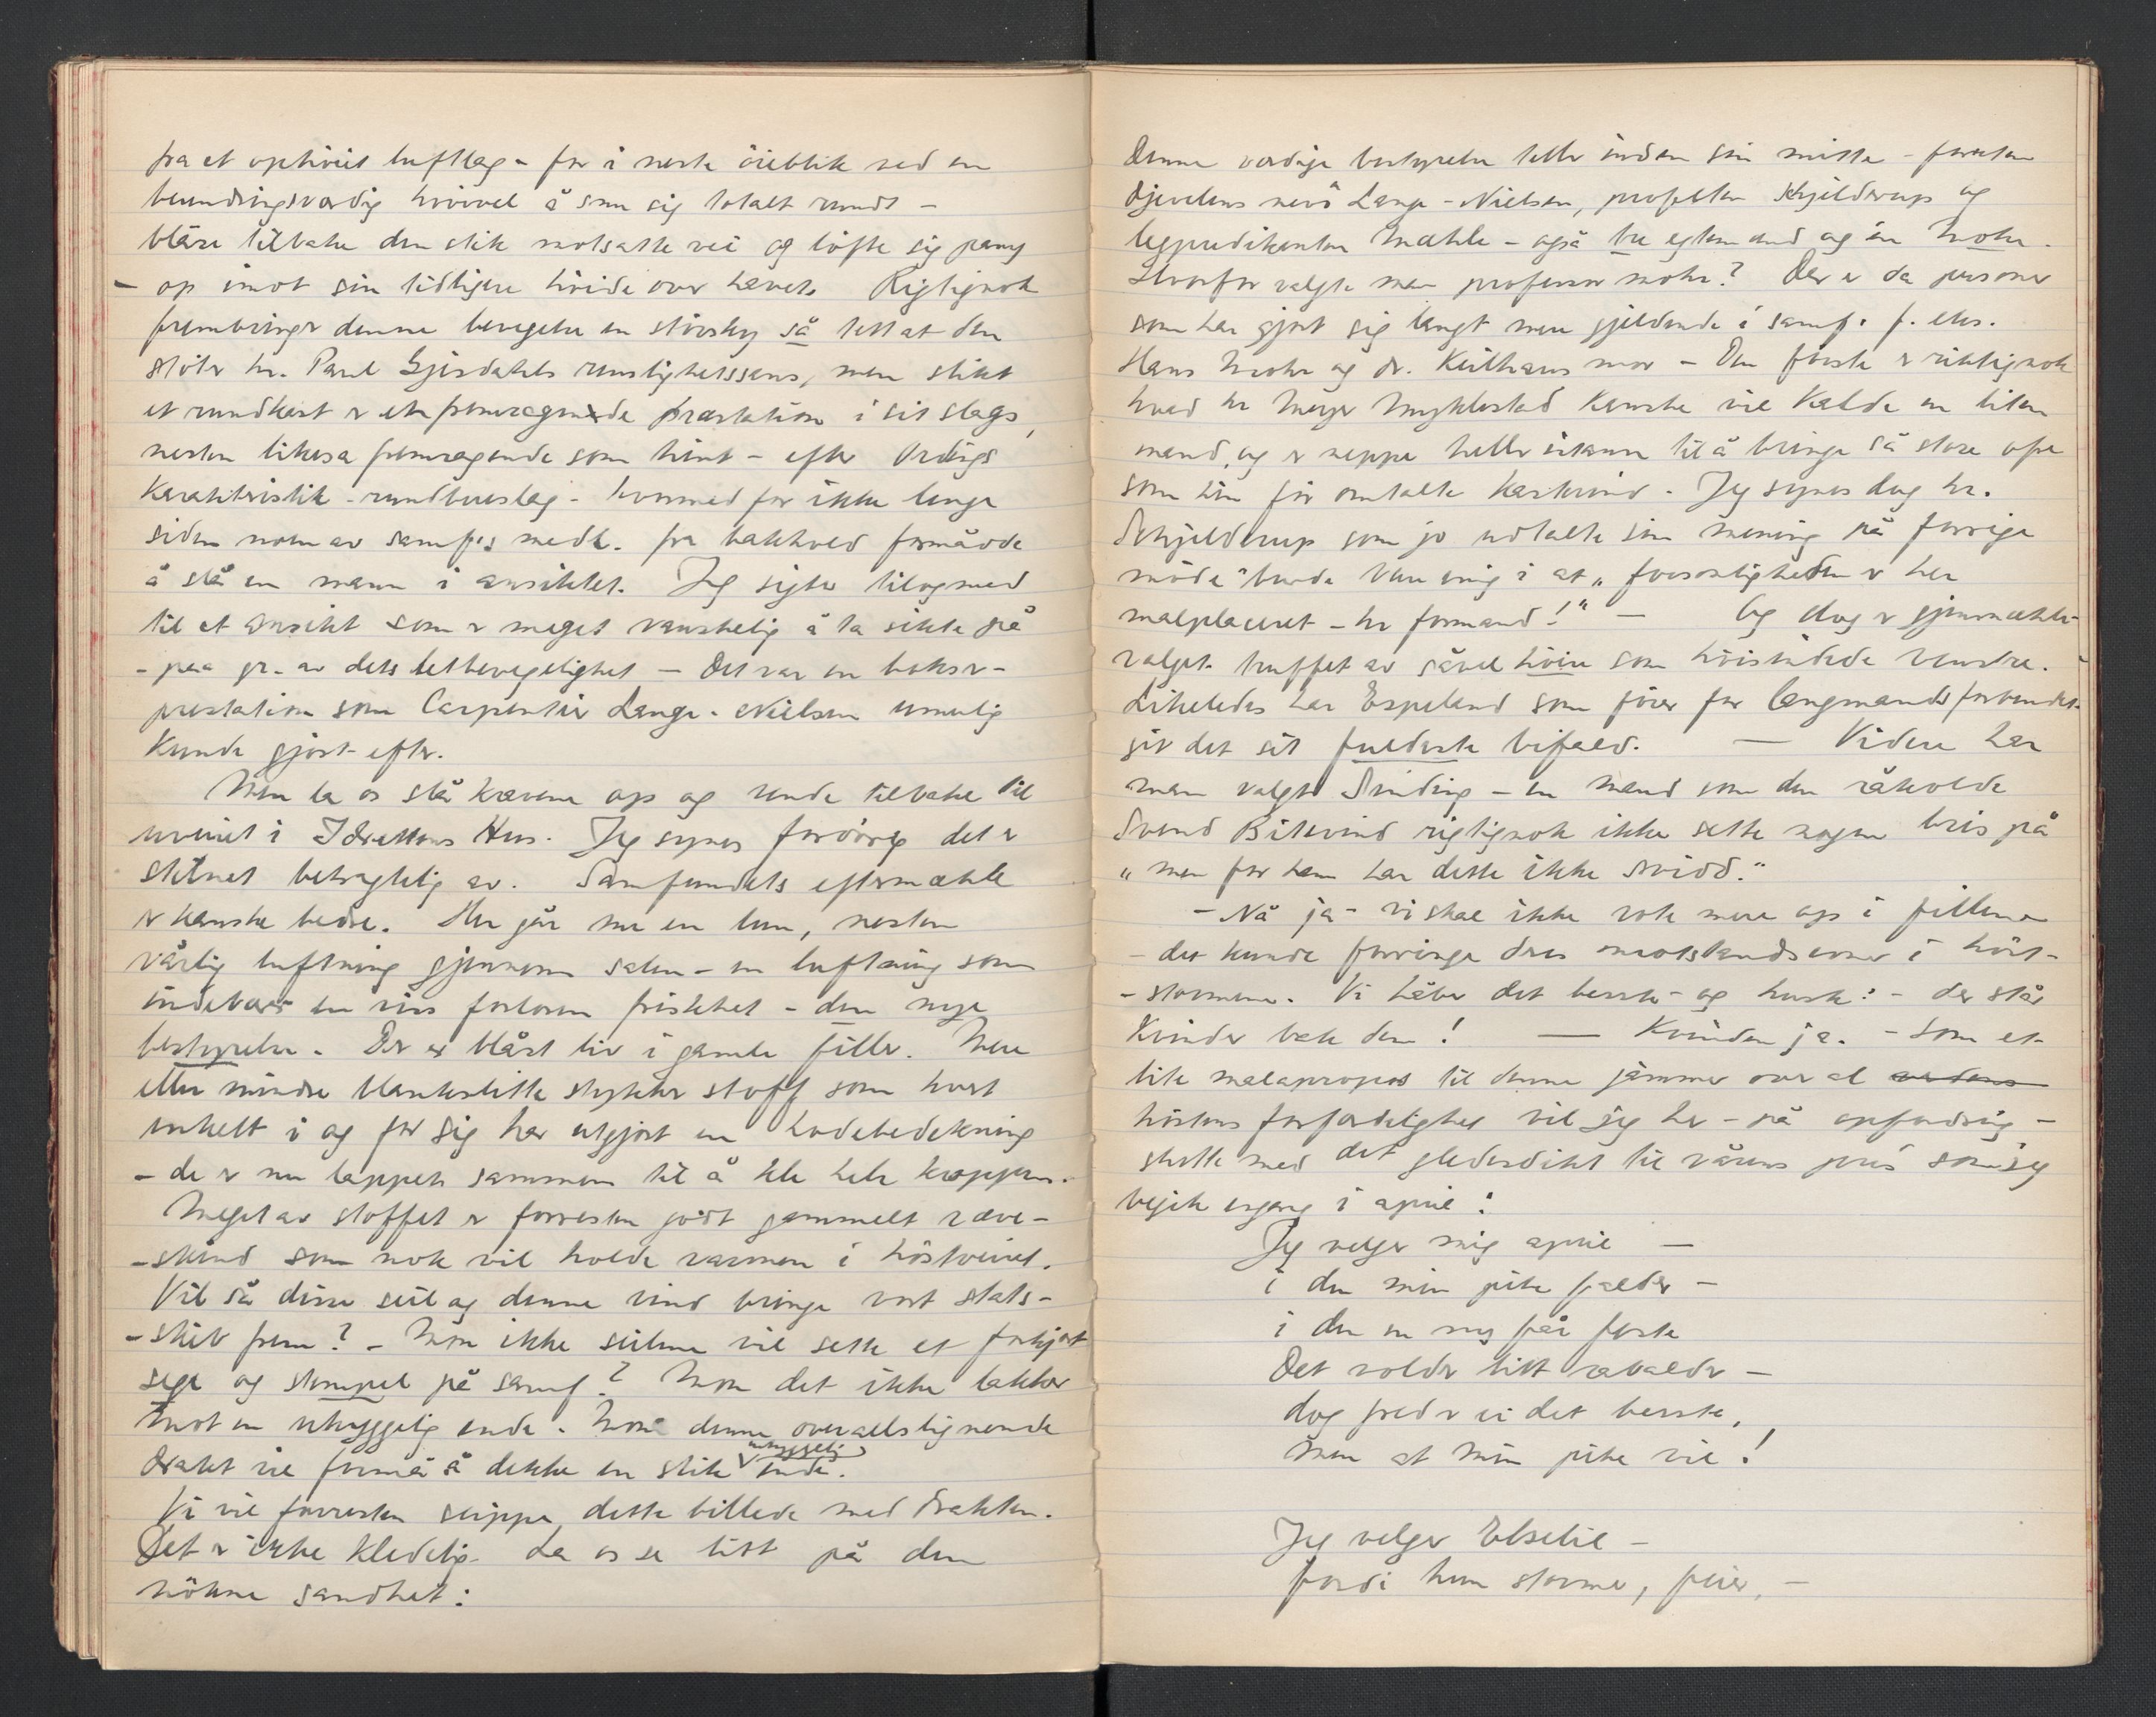 fra et ophöiet luftlag - for i neste öieblik ved en
beundringsværdig hvirvel å snu sig totalt rundt -
blåse tilbake den stik motsatte vei og löfte sig påny
- op imot sin tidligere höide over havets Rigtignok
frembringer denne bevegelse en stövsky så tett at den
stöter hr. Paul Gjesdahls renslighetssans, men slikt
et rundkast er en fremragende præstation i sit slags,
nesten likesa fremragende som hint - efter Ordings
Karakteristik - rundbueslag - hvormed for ikke lenge
siden noen av samf's medl. fra bakhold formådde
å slå en mann i ansiktet. Jeg sigter tilogmed
til et ansikt som er meget vanskelig å ta sikte på
- paa gr. av dets letbevegelighet - Det var en bokser-
prestation som Carpentier Lange-Nielsen umulig
kunde gjort efter.
Men la os slå kravene op og vende tilbake til
uveiret i Idrettens Hus. Jeg synes forövrig det er
stilnet betragtelig av. Samfundets eftermæhle
er kanske bedre. Her går nu en lun, nesten
vårlig luftning gjennem salen - en luftning som
indebærer en viss forloren friskhet - den nye
bestyrelse. Der er blåst liv i gamle filler. Mere
eller mindre blankslitte stykker stoff som hvert
enkelt i og for sig har utgjort en hodebedekning
- de er nu lappet sammen til å kle hele kroppen.
Meget av stoffet er forresten godt gammelt ræve-
-skind som nok vil holde varmen i höstveiret.
Vil så disse seil og denne vind bringe vort stats-
-skib frem? - Mon ikke seilene vil sette et forkjært
sege og stempel på samf? Mon det ikke lakker
mot en uhyggelig ende. Mon denne overaltslignende
drakt vil formå å dekke en slik uhyggelig ende.
Vi vil forresten slippe dette billede med drakten.
Det er ikke kledelig. La os se litt på den
nökne sandhet:
Denne verdige bestyrelse teller inden sin mitte - foruten
djevelens nevö Lange-Nielsen, profeten Schjelderup og
legpredikanten Mæhle - også tre egtemænd og en Mohr.
Hvorfor valgte man professor Mohr? Der er da personer
som har gjort sig langt mere gjeldende i samf. f. eks.
Hans Mohr og dr. Keilhaus mor - Den förste er riktignok
hvad hr Meyer Myklestad kanske vil kalde en liten
mand, og er neppe heller istand til å bringe så store ofre
som hin för omtalte kastevind. Jeg synes dog hr.
Schjelderup som jo udtalte sin mening på forrige
möde burde være enig i at "forsonligheden er her
malplaceret - hr formand!" - Og dog er gjennæhle-
valget truffet av såvel höire som höistidede venstre.
Likeledes har Espeland som förer for Lægmandsforbundet
git det sit fuldeste bifald. - Videre har
man valgt Sinding - en mand som den råkolde
Svend Bitevind rigtignok ikke sette nogen bris på
"men for ham har dette ikke svidd."
- Nå ja - vi skal ikke rote mere op i fillene
- det kunde forringe deres motstandsevne i höst-
-stormene. Vi håber det beste - og husk: - der står
Kvinder bak dem! - Kvinden ja. - Som et
lite malapropos til denne jammer over al
höstens forfærdelighet vil jeg her - på opfordring -
slutte med det gledesdikt til vårens pris som jeg
begik engang i april:
Jeg velger mig april -
i den min pike falder -
i den en ny får feste
Det volder litt rabalder -
dog fred er ei det beste,
men at min pike vil!
Jeg velger Elselil -
fordi hun stormer, feier, -